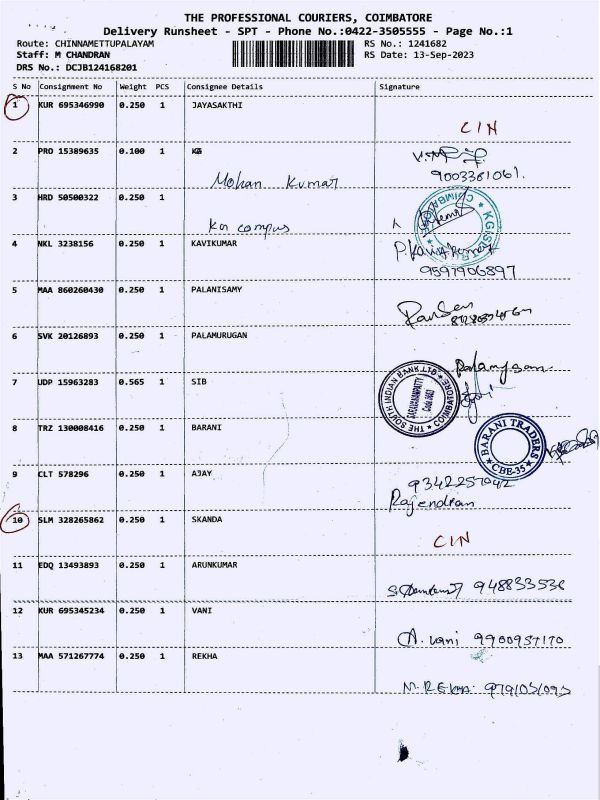 THE PROFESSIONAL COURIERS, COIMBATORE
Delivery Runsheet - SPT - Phone No.:0422-3505555 - Page No.:1
Route: CHINNAMETTUPALAYAM RS No.: 1241682
Staff: M CHANDRAN RS Date: 13-Sep-2023
DRS No.: DCJB124168201
S No Consignment No Weight PCS Consignee Details Signature
1 KUR 695346990 0.250 1 JAYASAKTHI
CIN
2 PRO 15389635 0.100 1 KG
Mohan Kumar 9003361061.
3 HRD 50500322 0.250 1
KG campus
4 NKL 3238156 0.250 1 KAVIKUMAR
9597906897
5 MAA 860260430 0.250 1 PALANISAMY
6 SVK 20126893 0.250 1 PALAMURUGAN
7 UDP 15963283 0.565 1 SIB
THE SOUTH INDIAN BANK LTD COIMBATORE
8 TRZ 130008416 0.250 1 BARANI
BARANI TRADERS CBE-35
9 CLT 578296 0.250 1 AJAY
9342257042
Rajendran
10 SLM 328265862 0.250 1 SKANDA
CIN
11 EDQ 13493893 0.250 1 ARUNKUMAR
948833536
12 KUR 695345234 0.250 1 VANI
A. vani 9900957170
13 MAA 571267774 0.250 1 REKHA
M. REKHA